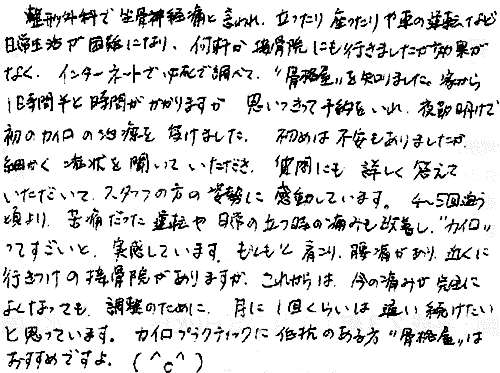 整形外科で坐骨神経痛と言われ、立ったり座ったりや車の運転など
日常生活が困難になり、何軒か接骨院にも行きましたが効果が
なく、インターネットで必死で調べて、"骨格屋"を知りました。家から
1時間半と時間がかかりますが 思いきって予約をいれ、夜勤明けで
初のカイロの治療を受けました。 初めは不安もありましたが
細かく症状を聞いていただき、質問にも詳しく答えて
いただいて、スタッフの方の姿勢に感動しています。4〜5回通う
頃より、苦痛だった運転や日常の立つ時の痛みも改善し、"カイロ"
ってすごいと、実感しています。もともと肩こり、腰痛があり、近くに
行きつけの接骨院がありますが、これからは、今の痛みが完全に
よくなっても、調整のために、月に1回くらいは通い続けたい
と思っています。カイロプラクティックに抵抗のある方"骨格屋"は
おすすめですよ。(^c^)